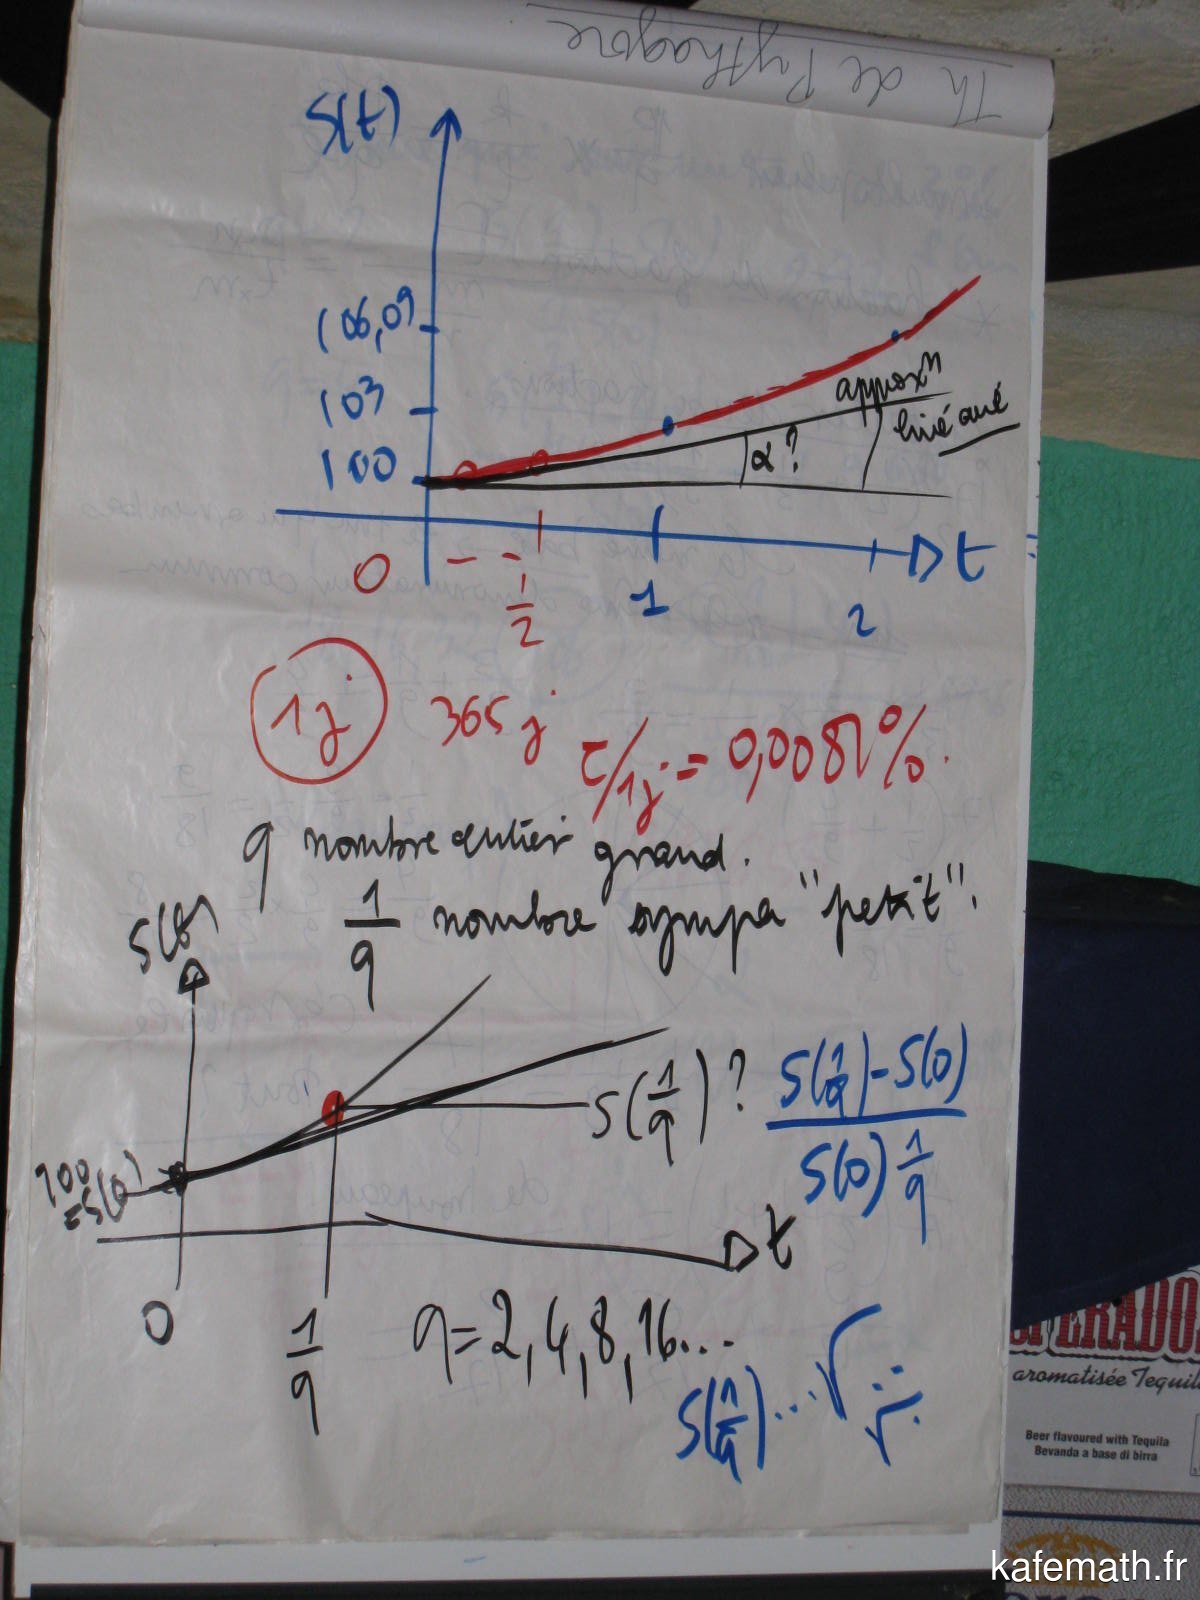 Th de Pythagore
S(t)
106,09
103
100
approxⁿ
linéaire
α ?
0
1/2
1
2
t
1j 365 j
τ/1j = 0,0081%.
q nombre entier grand.
1/q nombre sympa "petit".
S(t)
S(1/q) ?
S(1/q) - S(0)
S(0) 1/q
100
= S(0)
t
0
1/q
q = 2, 4, 8, 16...
S(1/q) ... √
aromatisée Tequila
Beer flavoured with Tequila
Bevanda a base di birra
kafemath.fr